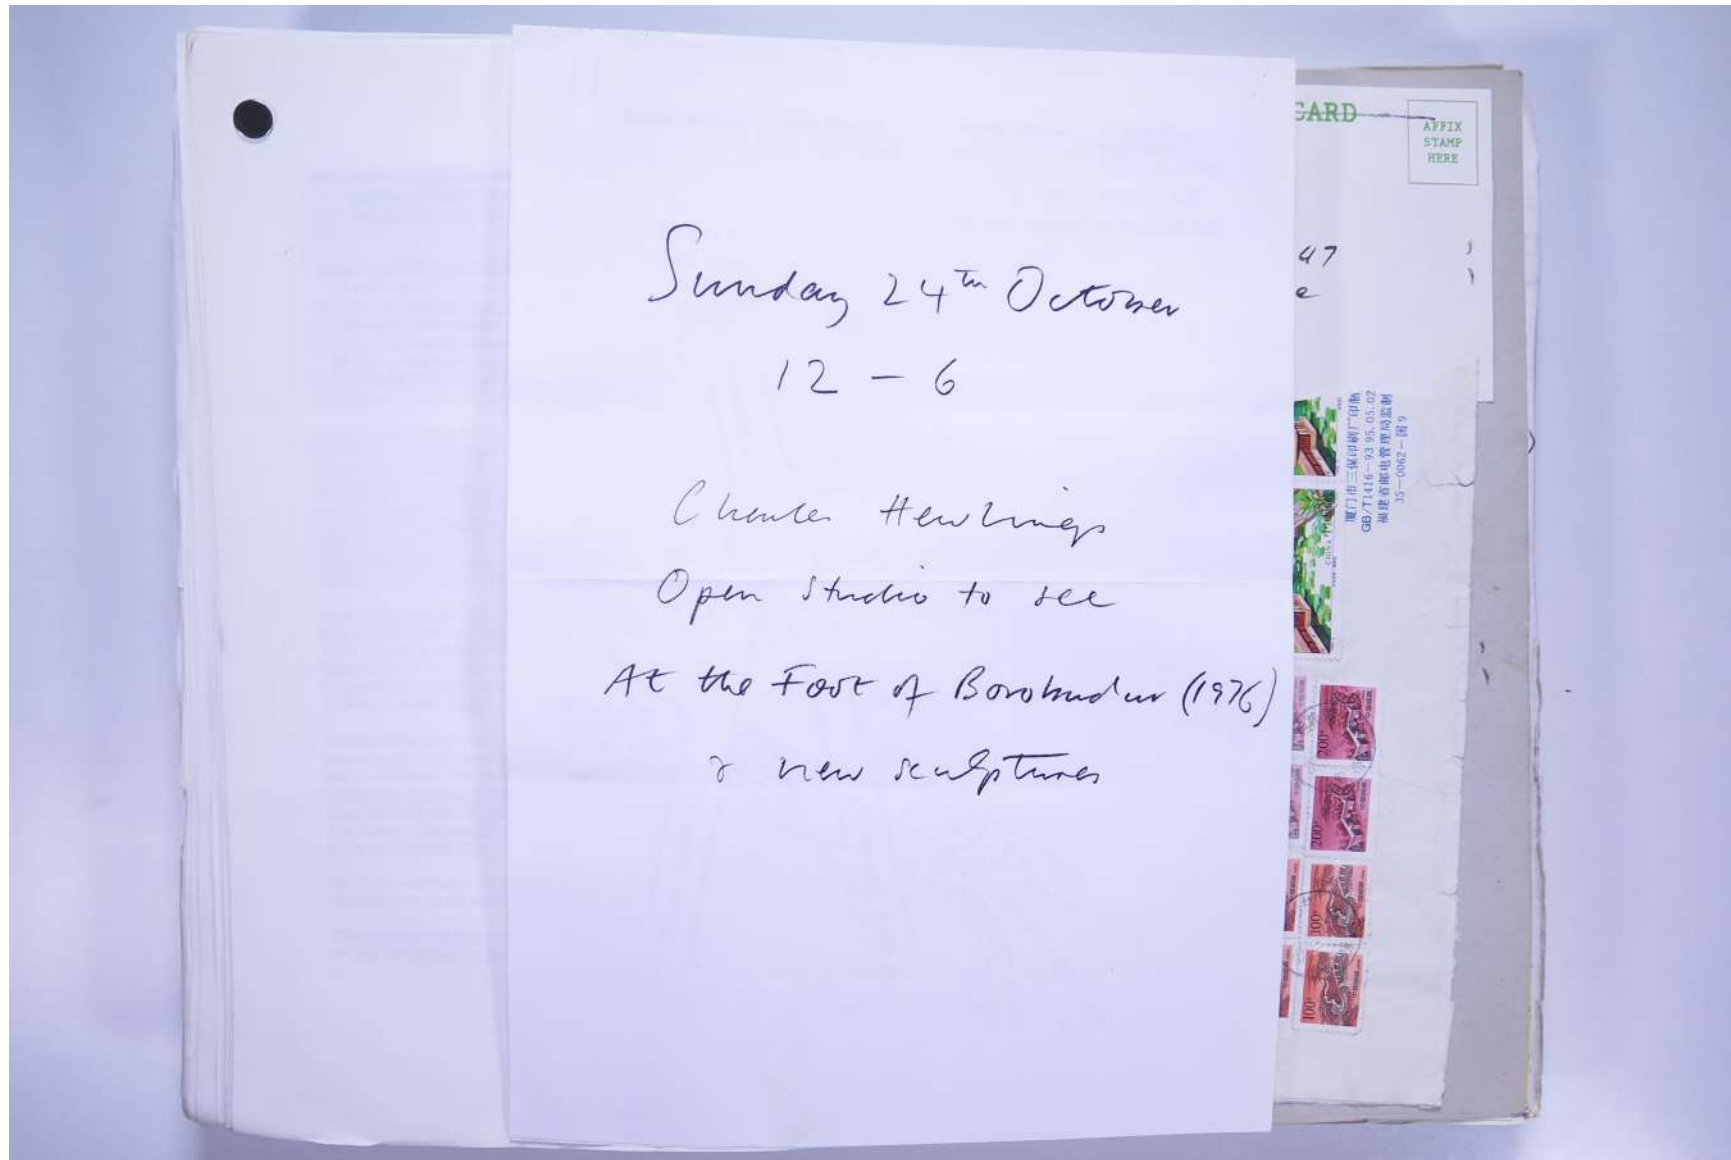 Sunday 24th October
12 – 6
Charles Hewlings
Open Studio to see
At the Foot of Borobudur (1976)
& new sculptures
CARD
AFFIX
STAMP
HERE
47
e
厦门市三保印刷厂印制
GB/T1416-93 95.05.02
福建省邮电管理局监制
35-0062-国9
CHINA
200
200
100
100